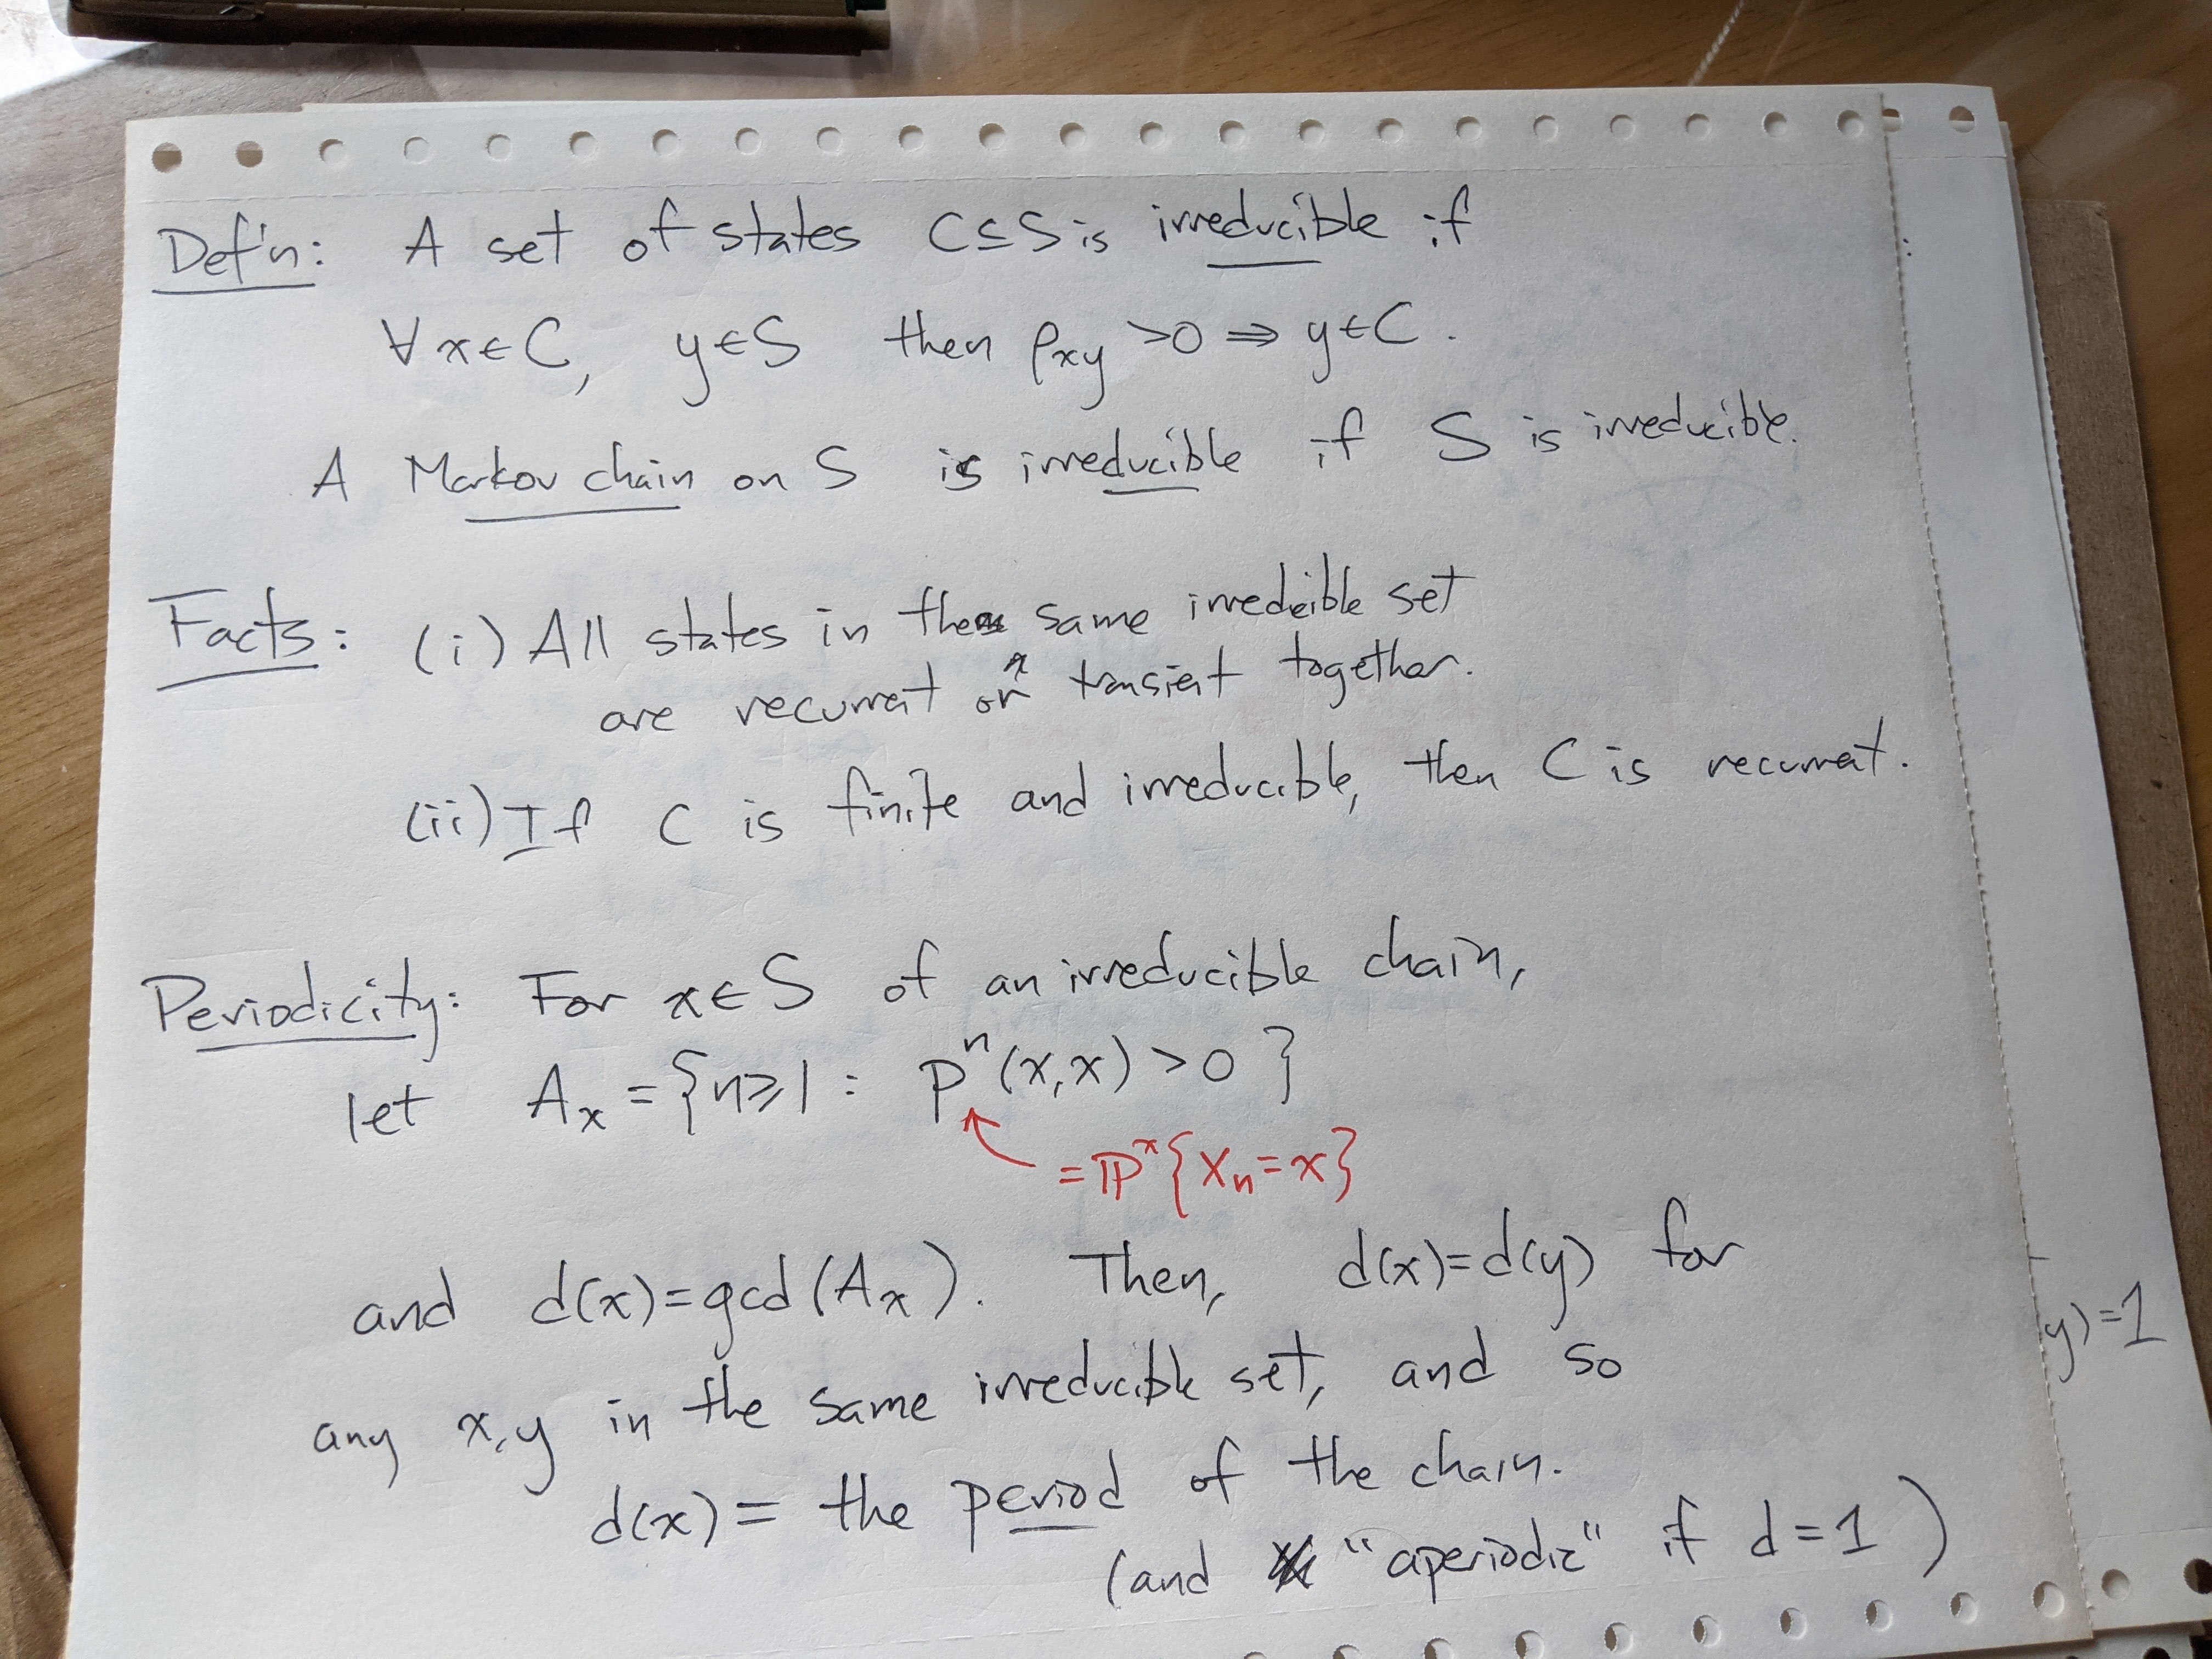 Def'n: A set of states C⊆S is irreducible if
∀x∈C, y∈S then ρxy >0 ⇒ y∈C.
A Markov chain on S is irreducible if S is irreducible.
Facts: (i) All states in the same irreducible set
are recurrent or transient together.
(ii) If C is finite and irreducible, then C is recurrent.
Periodicity: For x∈S of an irreducible chain,
let Ax = {n≥1 : pⁿ(x,x) >0 }
=ℙˣ{Xn=x}
and d(x)=gcd(Ax). Then, d(x)=d(y) for
any x,y in the same irreducible set, and so
d(x)= the period of the chain.
(and "aperiodic" if d=1 )
y)=1